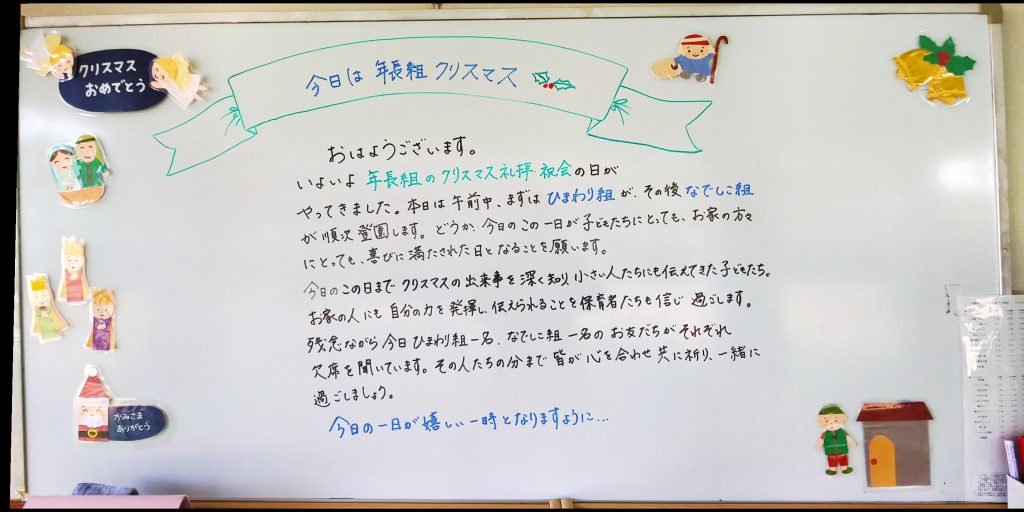 クリスマス
おめでとう
今日は 年長組 クリスマス
おはようございます。
いよいよ 年長組の クリスマス礼拝・祝会の日が
やってきました。本日は 午前中、まずは ひまわり組が、その後 なでしこ組
が 順次 登園します。どうか、今日の この 一日が 子どもたちにとっても、お家の方々
にとっても、喜びに 満たされた 日と なることを 願います。
今日の この日まで クリスマスの 出来事を 深く知り、小さい人たちにも 伝えてきた 子どもたち。
お家の人にも 自分の力を 発揮し、伝えられることを 保育者たちも 信じ 過ごします。
残念ながら 今日 ひまわり組 一名、なでしこ組 一名の お友だちが それぞれ
欠席を 聞いています。その人たちの 分まで 皆が 心を 合わせ 共に 祈り、一緒に
過ごしましょう。
今日の 一日が 嬉しい 一時と なりますように…
かみさま
ありがとう